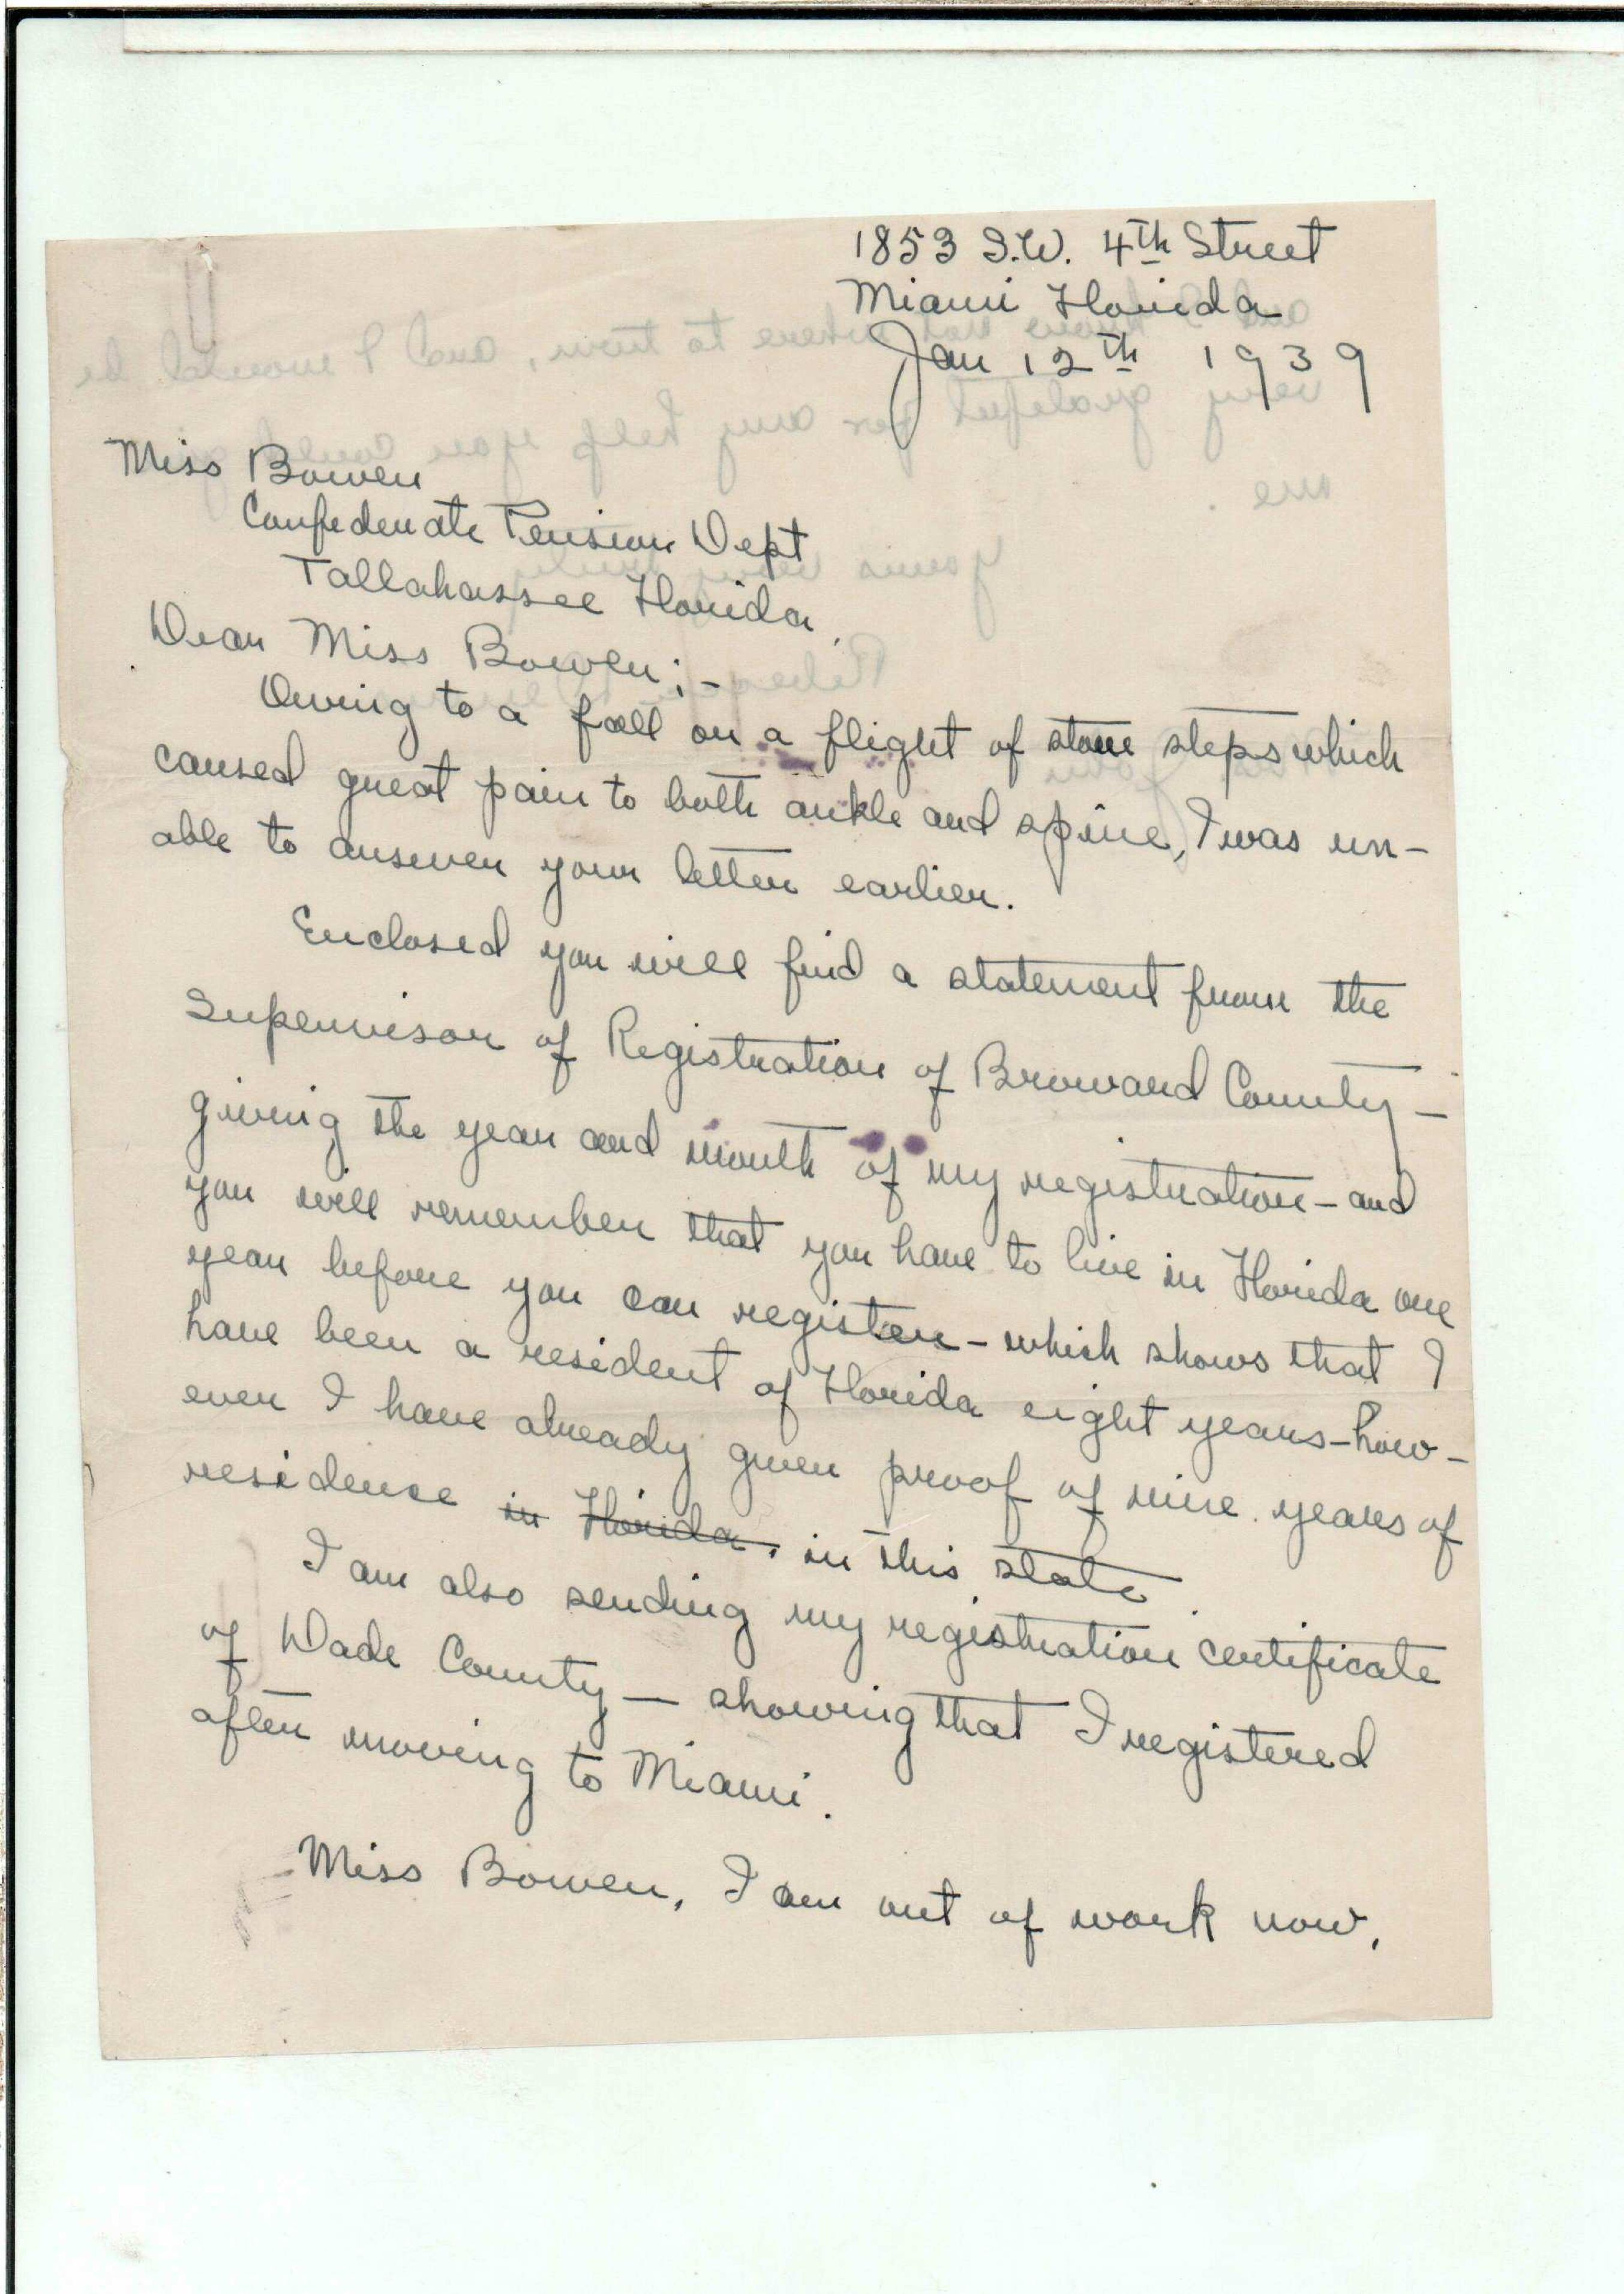 1853 S.W. 4th Street
Miami Florida
Jan 12th 1939
Miss Bowen
Confederate Pension Dept
Tallahassee Florida.
Dear Miss Bowen;-
Owing to a fall on a flight of stone steps which
caused great pain to both ankle and spine, I was un-
able to answer your letter earlier.
Enclosed you will find a statement from the
Supervisor of Registration of Broward County -
giving the year and month of my registration - and
you will remember that you have to live in Florida one
year before you can register - which shows that I
have been a resident of Florida eight years - how-
ever I have already given proof of nine years of
residence in Florida, in this state.
I am also sending my registration certificate
of Dade County - showing that I registered
after moving to Miami.
Miss Bowen, I am out of work now,